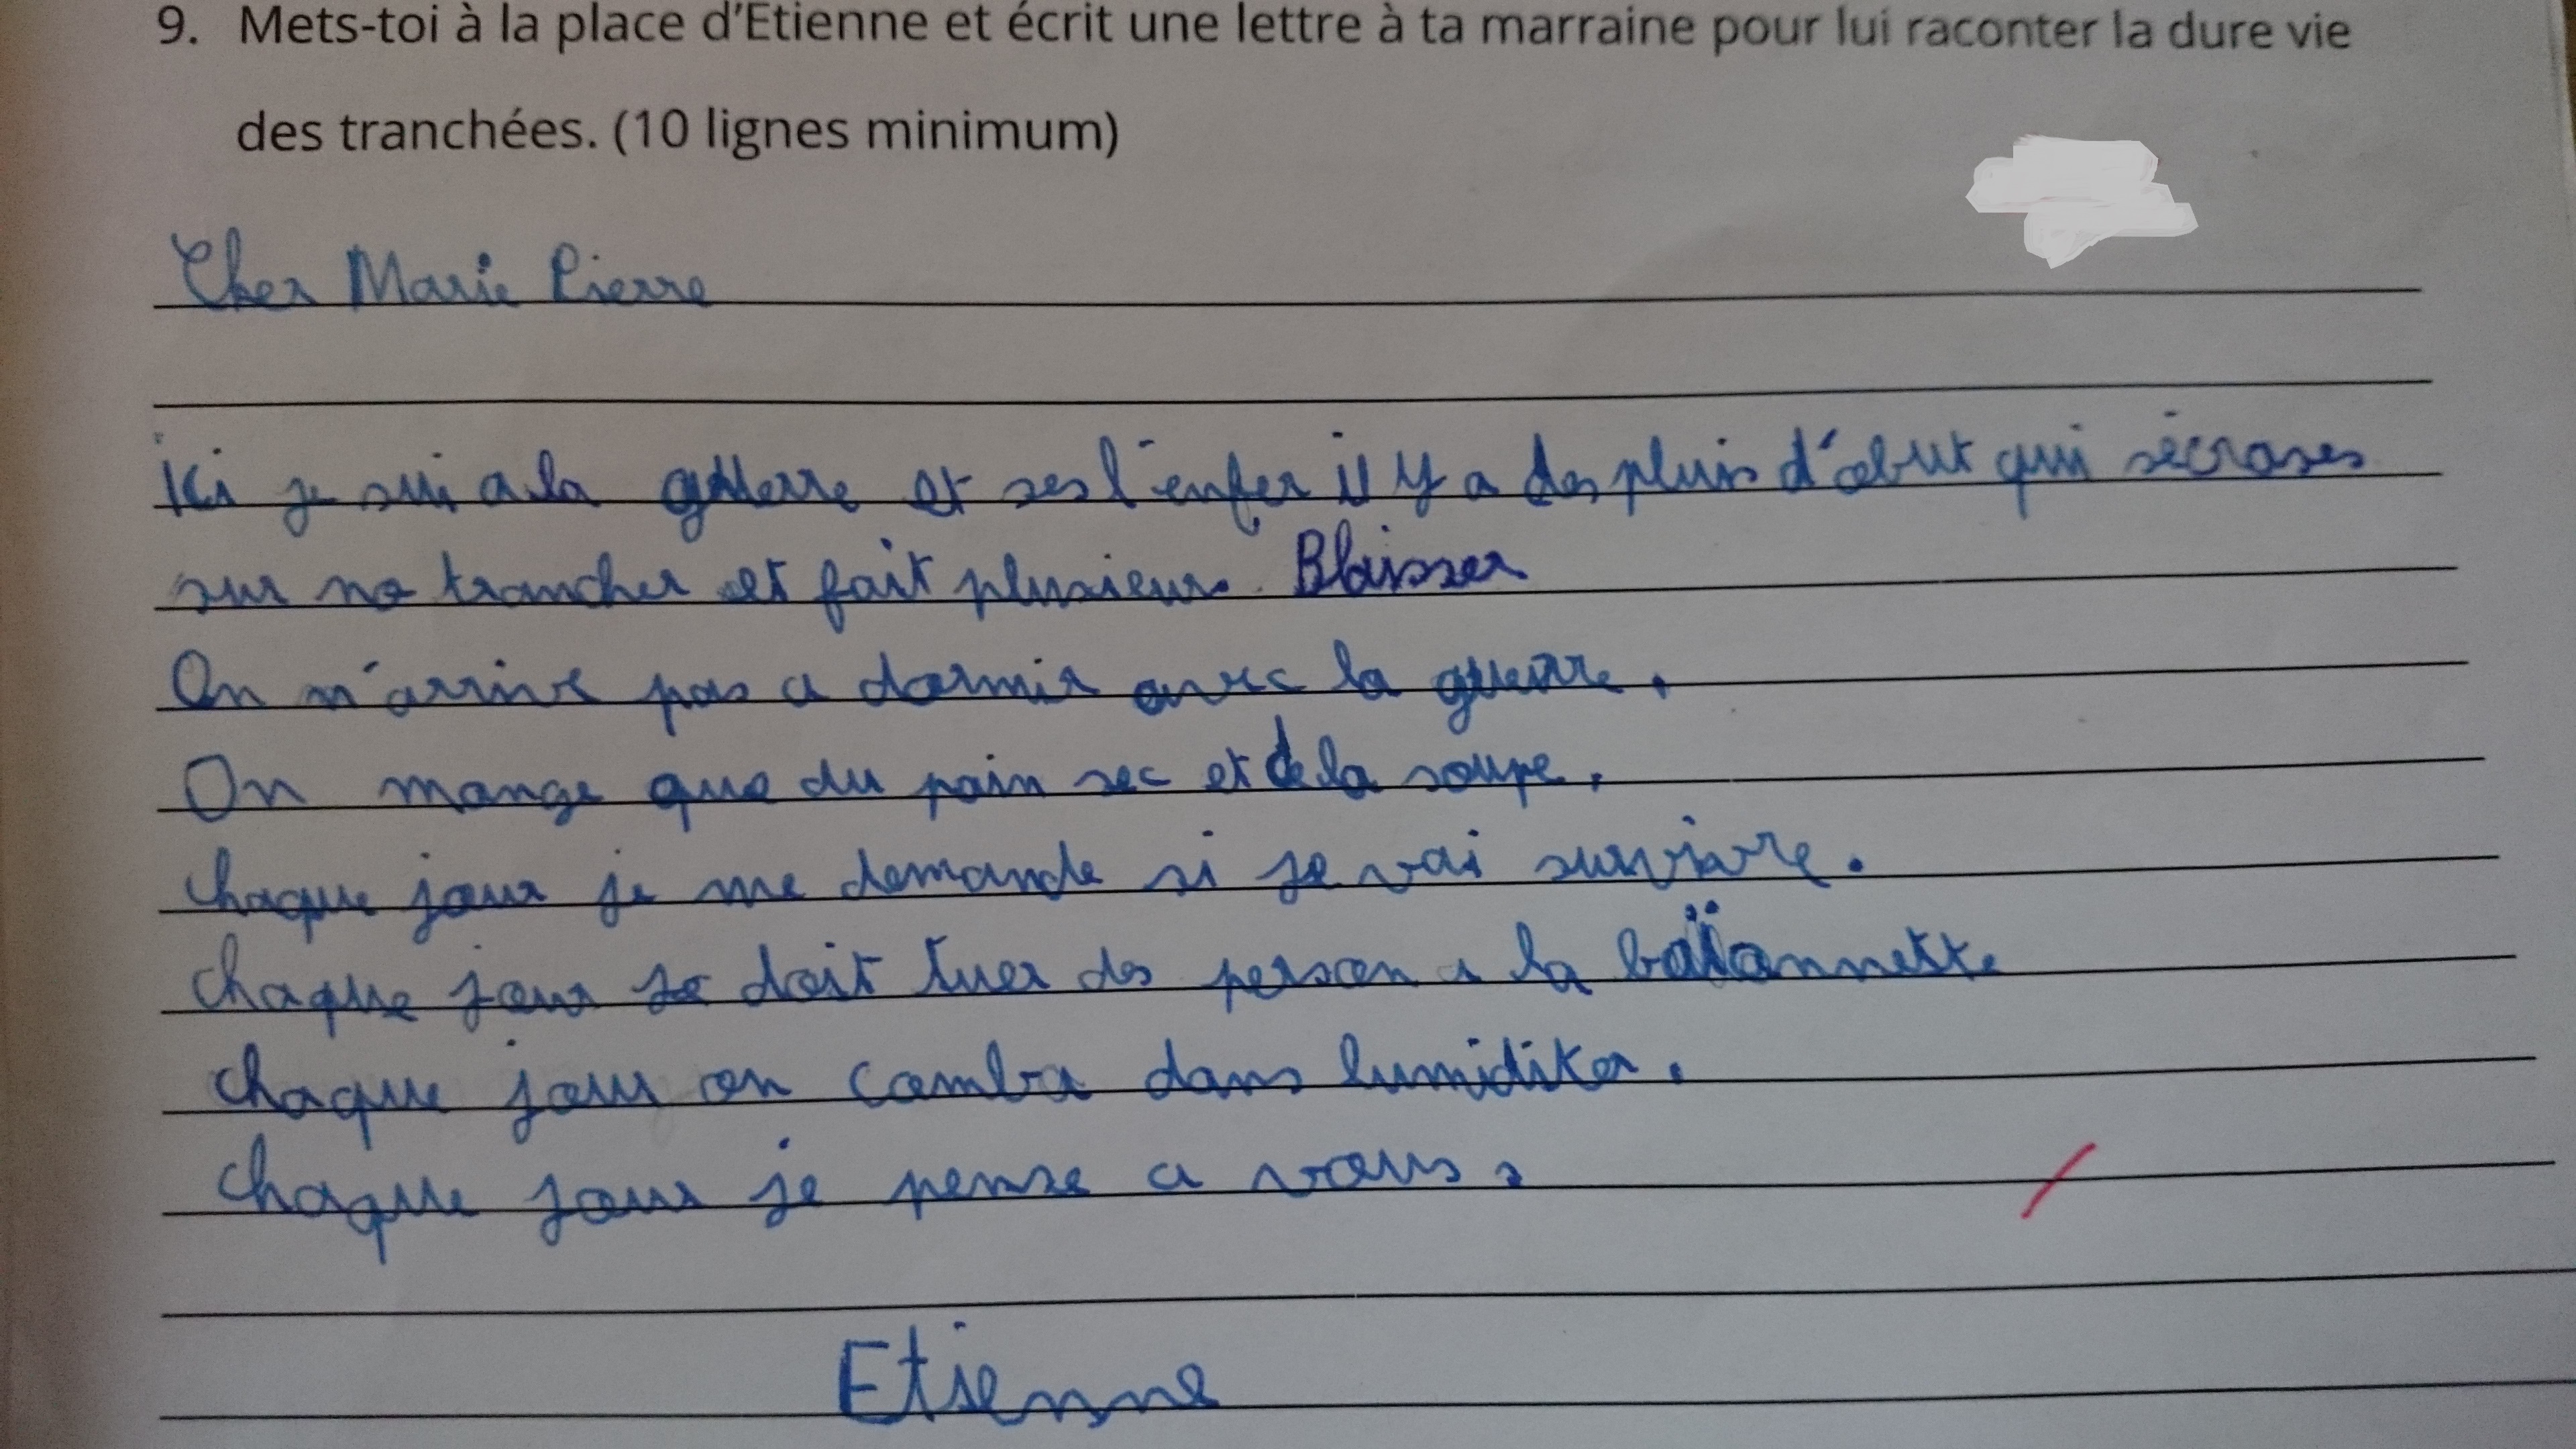 9. Mets-toi à la place d'Etienne et écrit une lettre à ta marraine pour lui raconter la dure vie
des tranchées. (10 lignes minimum)
Cher Marie Pierre
Ici je sui a la guerre et ses l'enfer il y a des pluis d'obut qui sécrases
sur no trancher et fait plusieurs Blaisser
On n'arrive pas a dormir avec la guerre.
On mange que du pain sec et de la soupe.
chaque jour je me demande si je vai survivre.
chaque jour je doit tuer des person a la baïonnette
chaque jour on comba dans lumiditer.
chaque jour je pense a vous.
Etienne